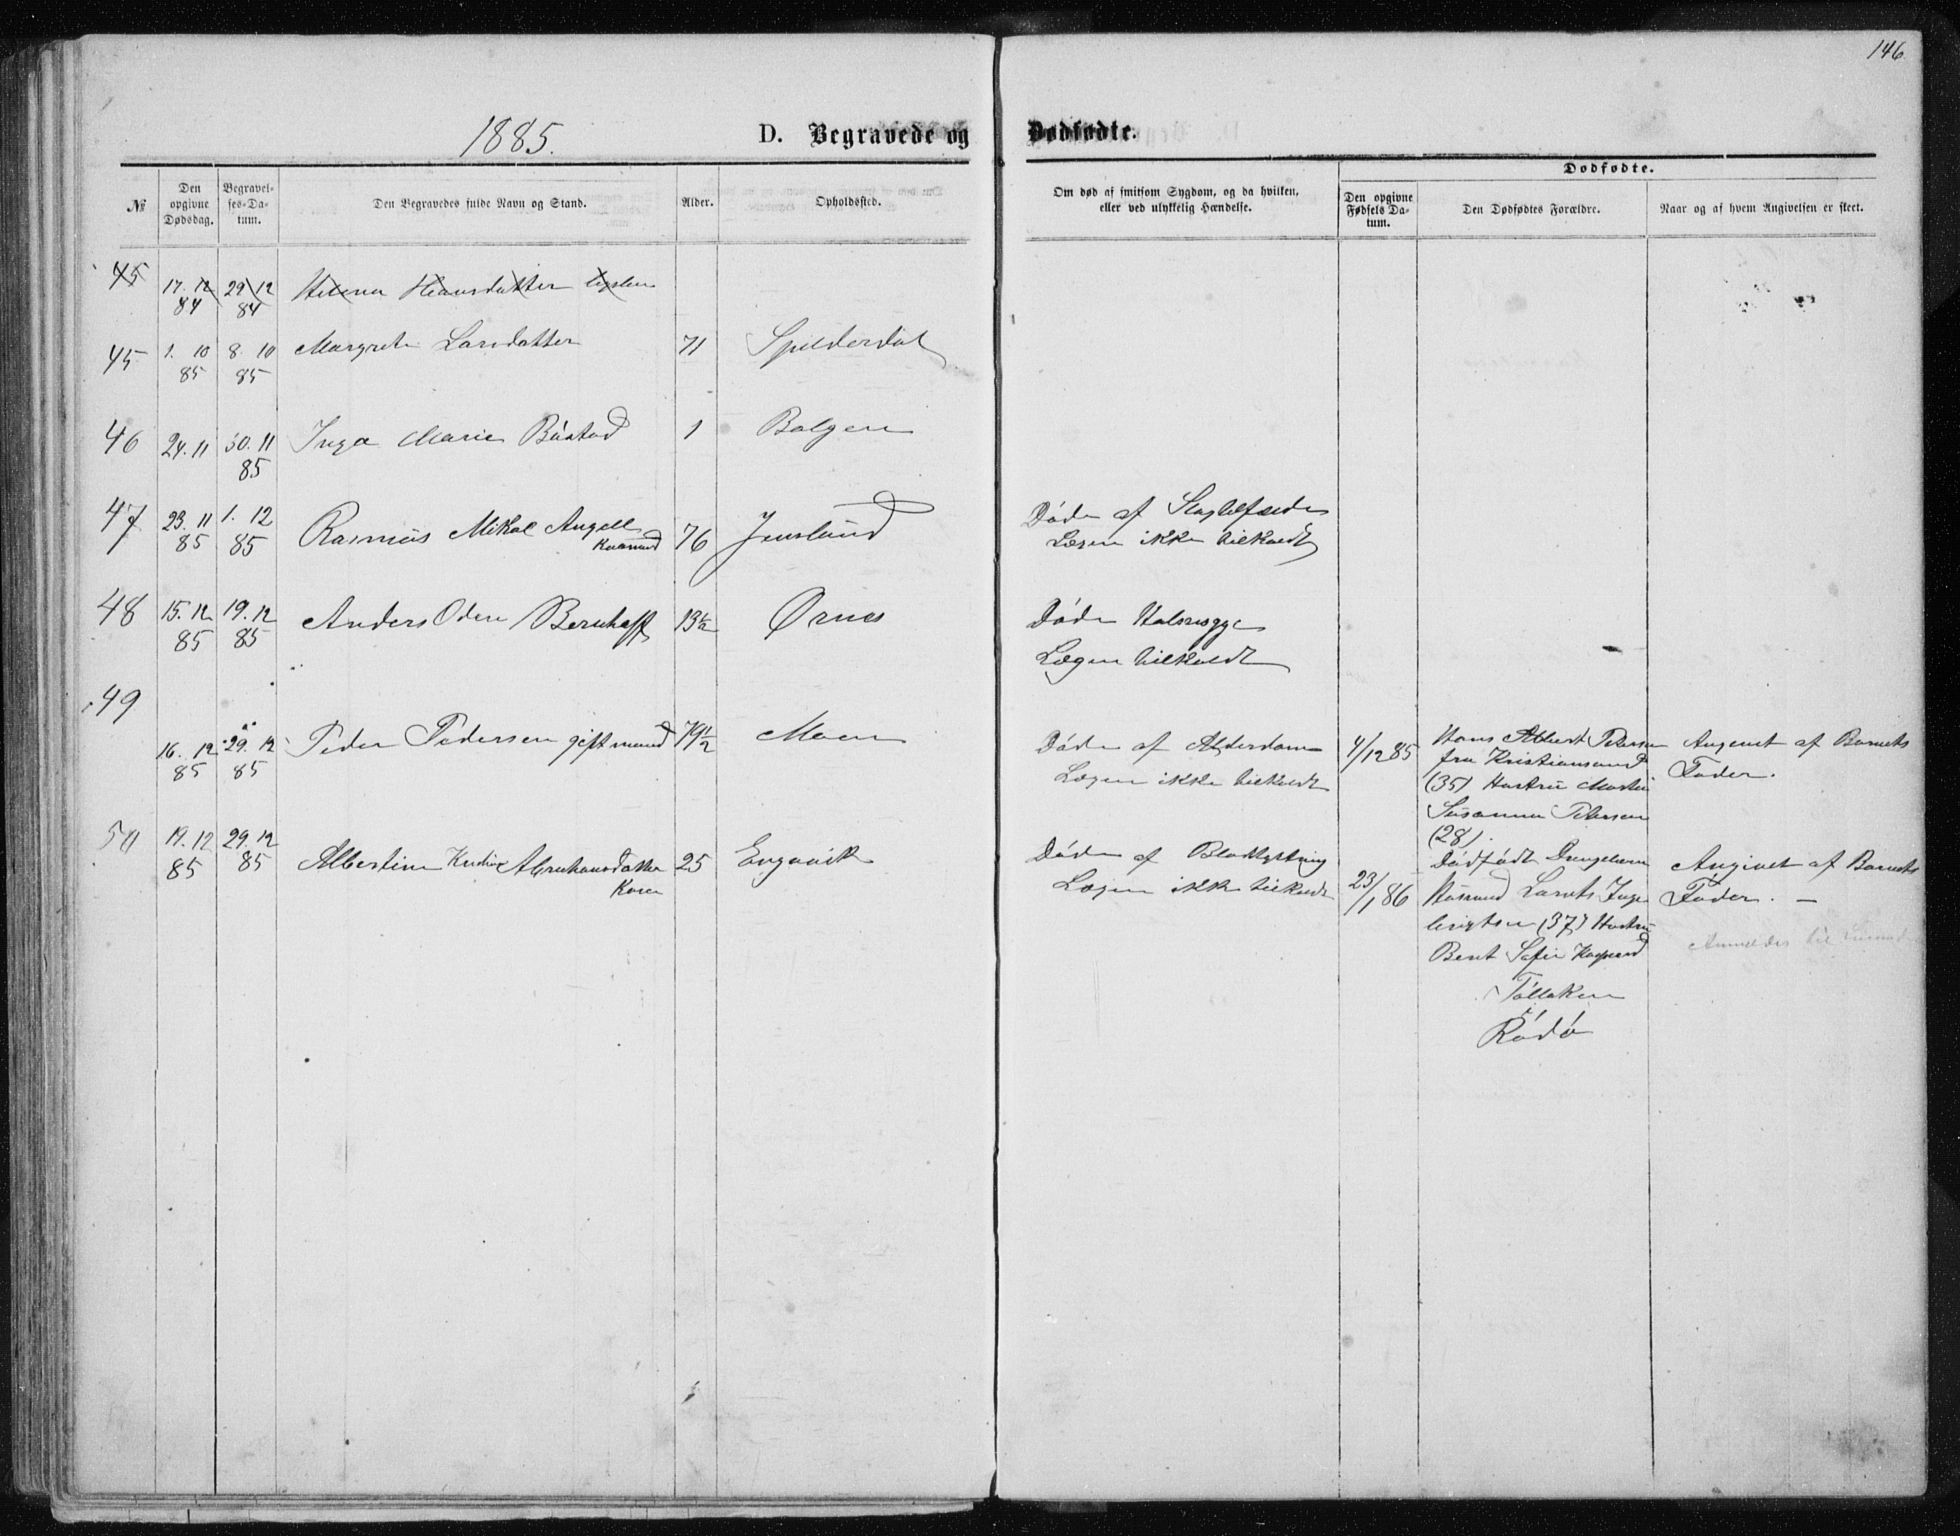 146
1885.
D. Begravede og Dødfødte.
№
Den opgivne Dødsdag.
Begravelses-Datum.
Den Begravedes fulde Navn og Stand.
Alder.
Opholdssted.
Om død af smitsom Sygdom, og da hvilken, eller ved ulykkelig Hændelse.
Dødfødte.
Den opgivne Fødsels Datum.
Den Dødfødtes Forældre.
Naar og af hvem Angivelsen er skeet.
45 17. 12 84 29 12 84 Helena Hansdatter
45 1. 10 85 8. 10 85 Margrete Larsdatter 71 Spilderdal
46 24. 11 30. 11 85 Inga Marie Båstad 1 Bolgen
47 23. 11 85 1. 12 85 Rasmus Mikal Angell 76 Jenslund
Døde af Slagtilfælde
Lægen ikke tilkaldt
48 15. 12 85 19. 12 85 Anders Oden Bernhoft 13½ Ørnes
Døde
Lægen tilkaldt
49
16. 12 85 29. 12 85 Peder Pedersen gift mand 79½ Moen
Døde af Alderdom
Lægen ikke tilkaldt
4/12 85
Hans Albert Petersen
fra Kristiansund
(35) Hustru
Susanna Petersen
(28).
Angivet af Barnets
Fader.
50 19. 12 85 29. 12 85 Albertine 25 Engavik
Døde af
Lægen ikke tilkaldt
23/1 86
Dødfødt Drengebarn
Husmand Lornts Inge
brigtsen (37) Hustru
Berit Sofie
Rødø
Angivet af Barnets
Fader. —
Anmeldes til